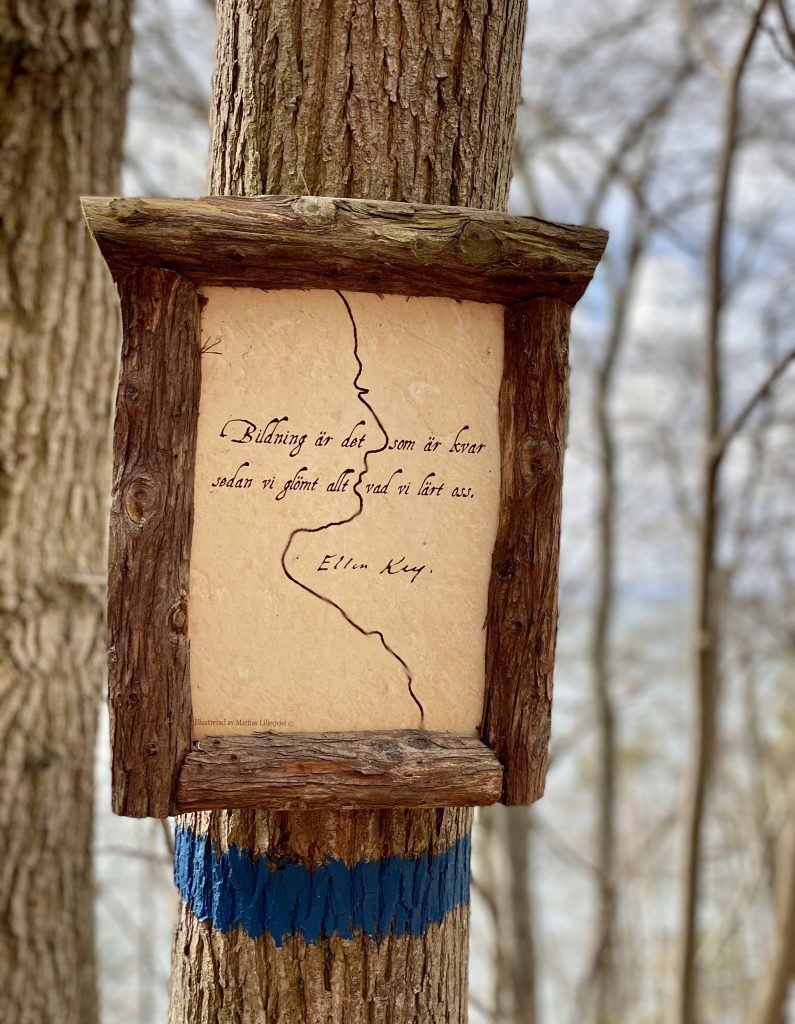 Bildning är det som är kvar
sedan vi glömt allt vad vi lärt oss.
Ellen Key.
Illustrerad av Mattias Liljeqvist ©